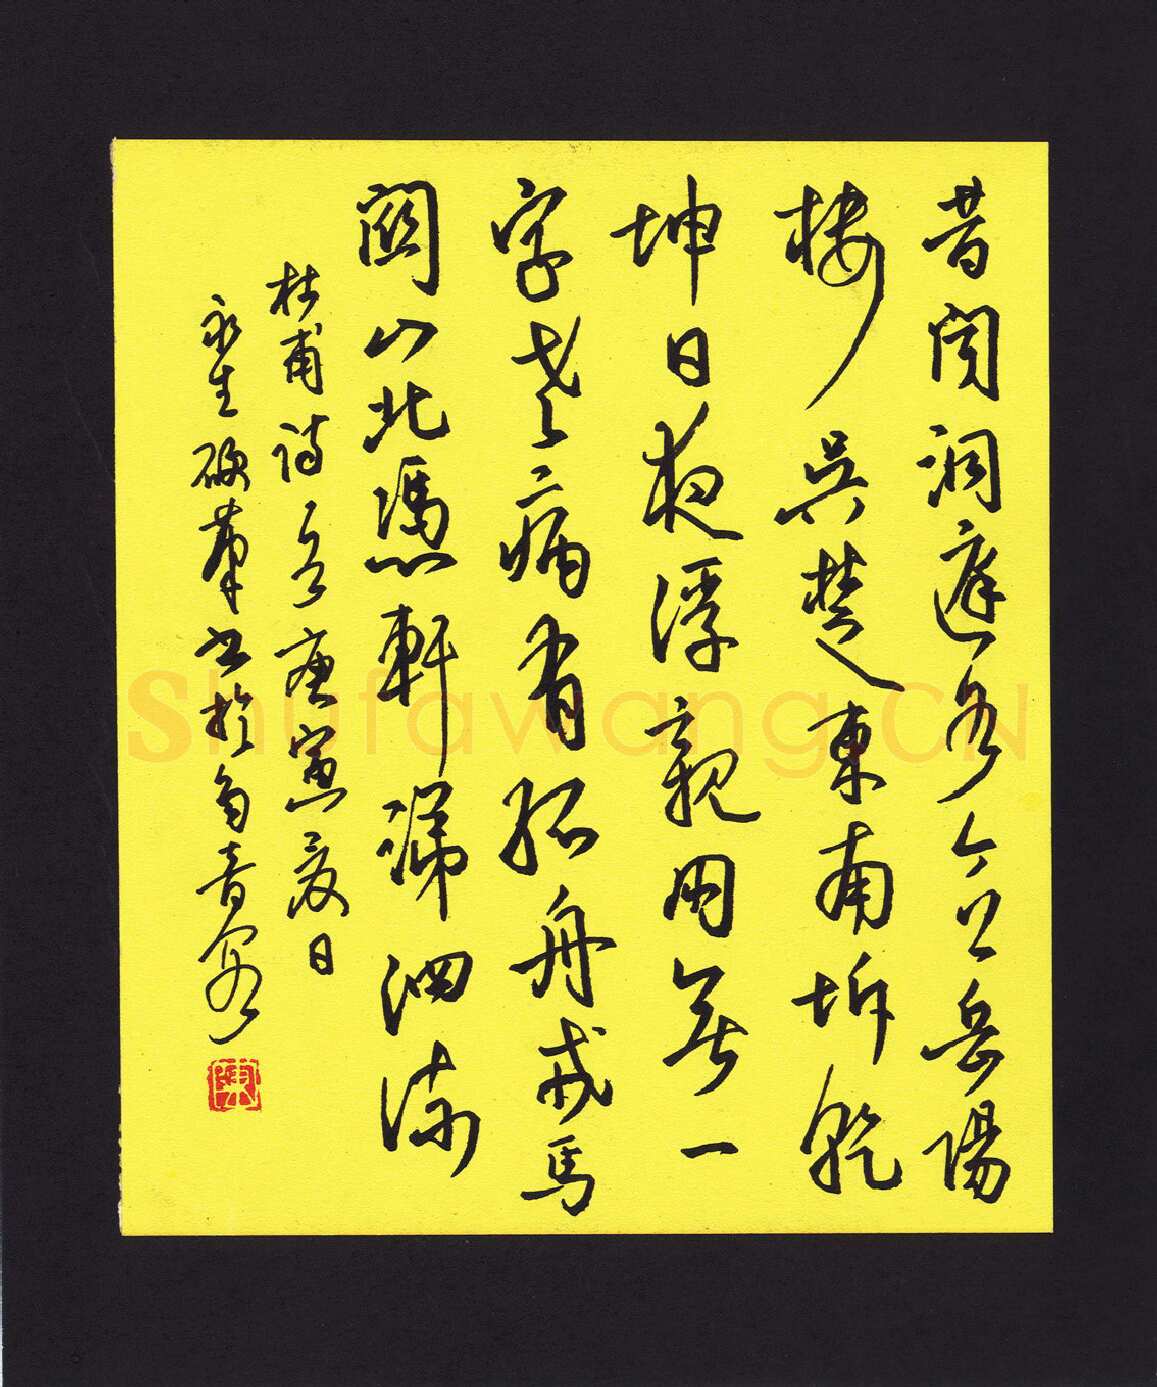 昔聞洞庭水今上岳陽
樓吳楚東南坼乾
坤日夜浮親朋無一
字老病有孤舟戎馬
關山北憑軒涕泗流
杜甫詩一首庚寅夏日
永生硬筆書於
Shufawang.CN